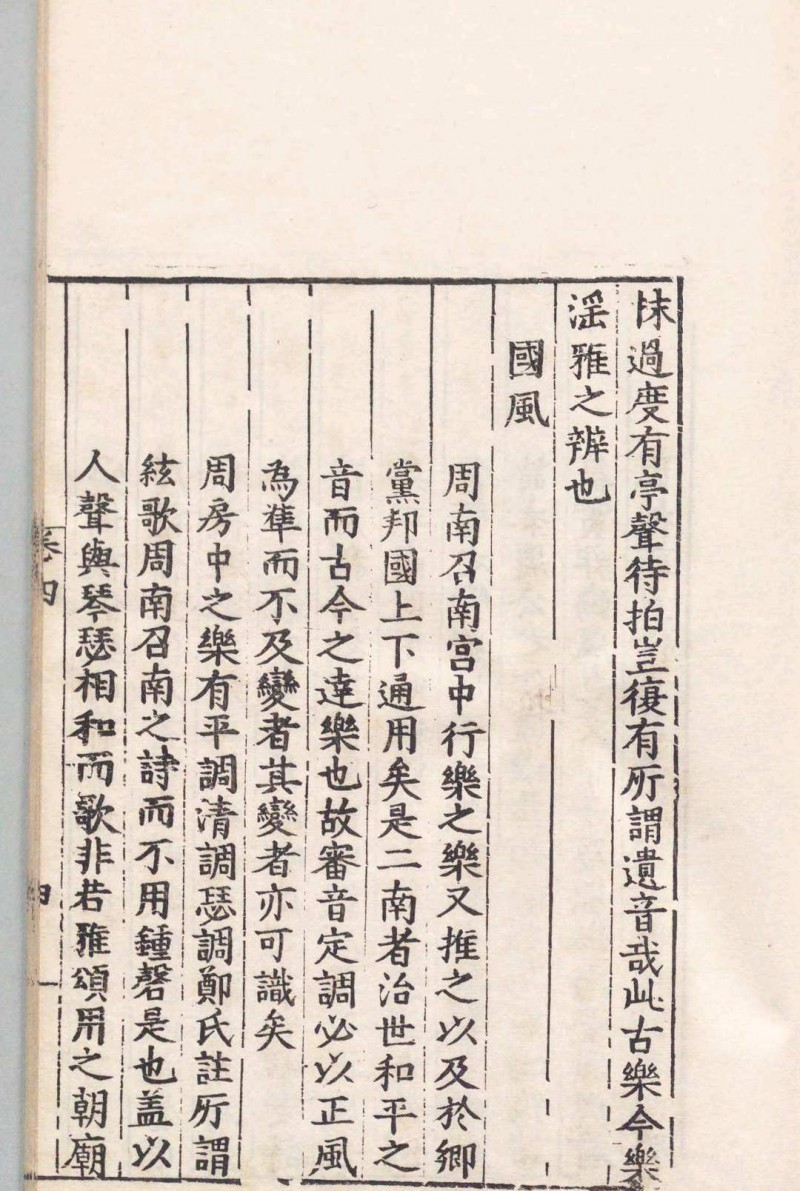 怽過度有亭聲待拍豈復有所謂遺音哉此古樂今樂
淫雅之辨也
國風
周南召南宮中行樂之樂又推之以及於鄉
黨邦國上下通用矣是二南者治世和平之
音而古今之達樂也故審音定調必以正風
為準而不及變者其變者亦可識矣
周房中之樂有平調清調瑟調鄭氏註所謂
絃歌周南召南之詩而不用鍾磬是也盖以
人聲與琴瑟相和而歌非若雅頌用之朝廟
卷四